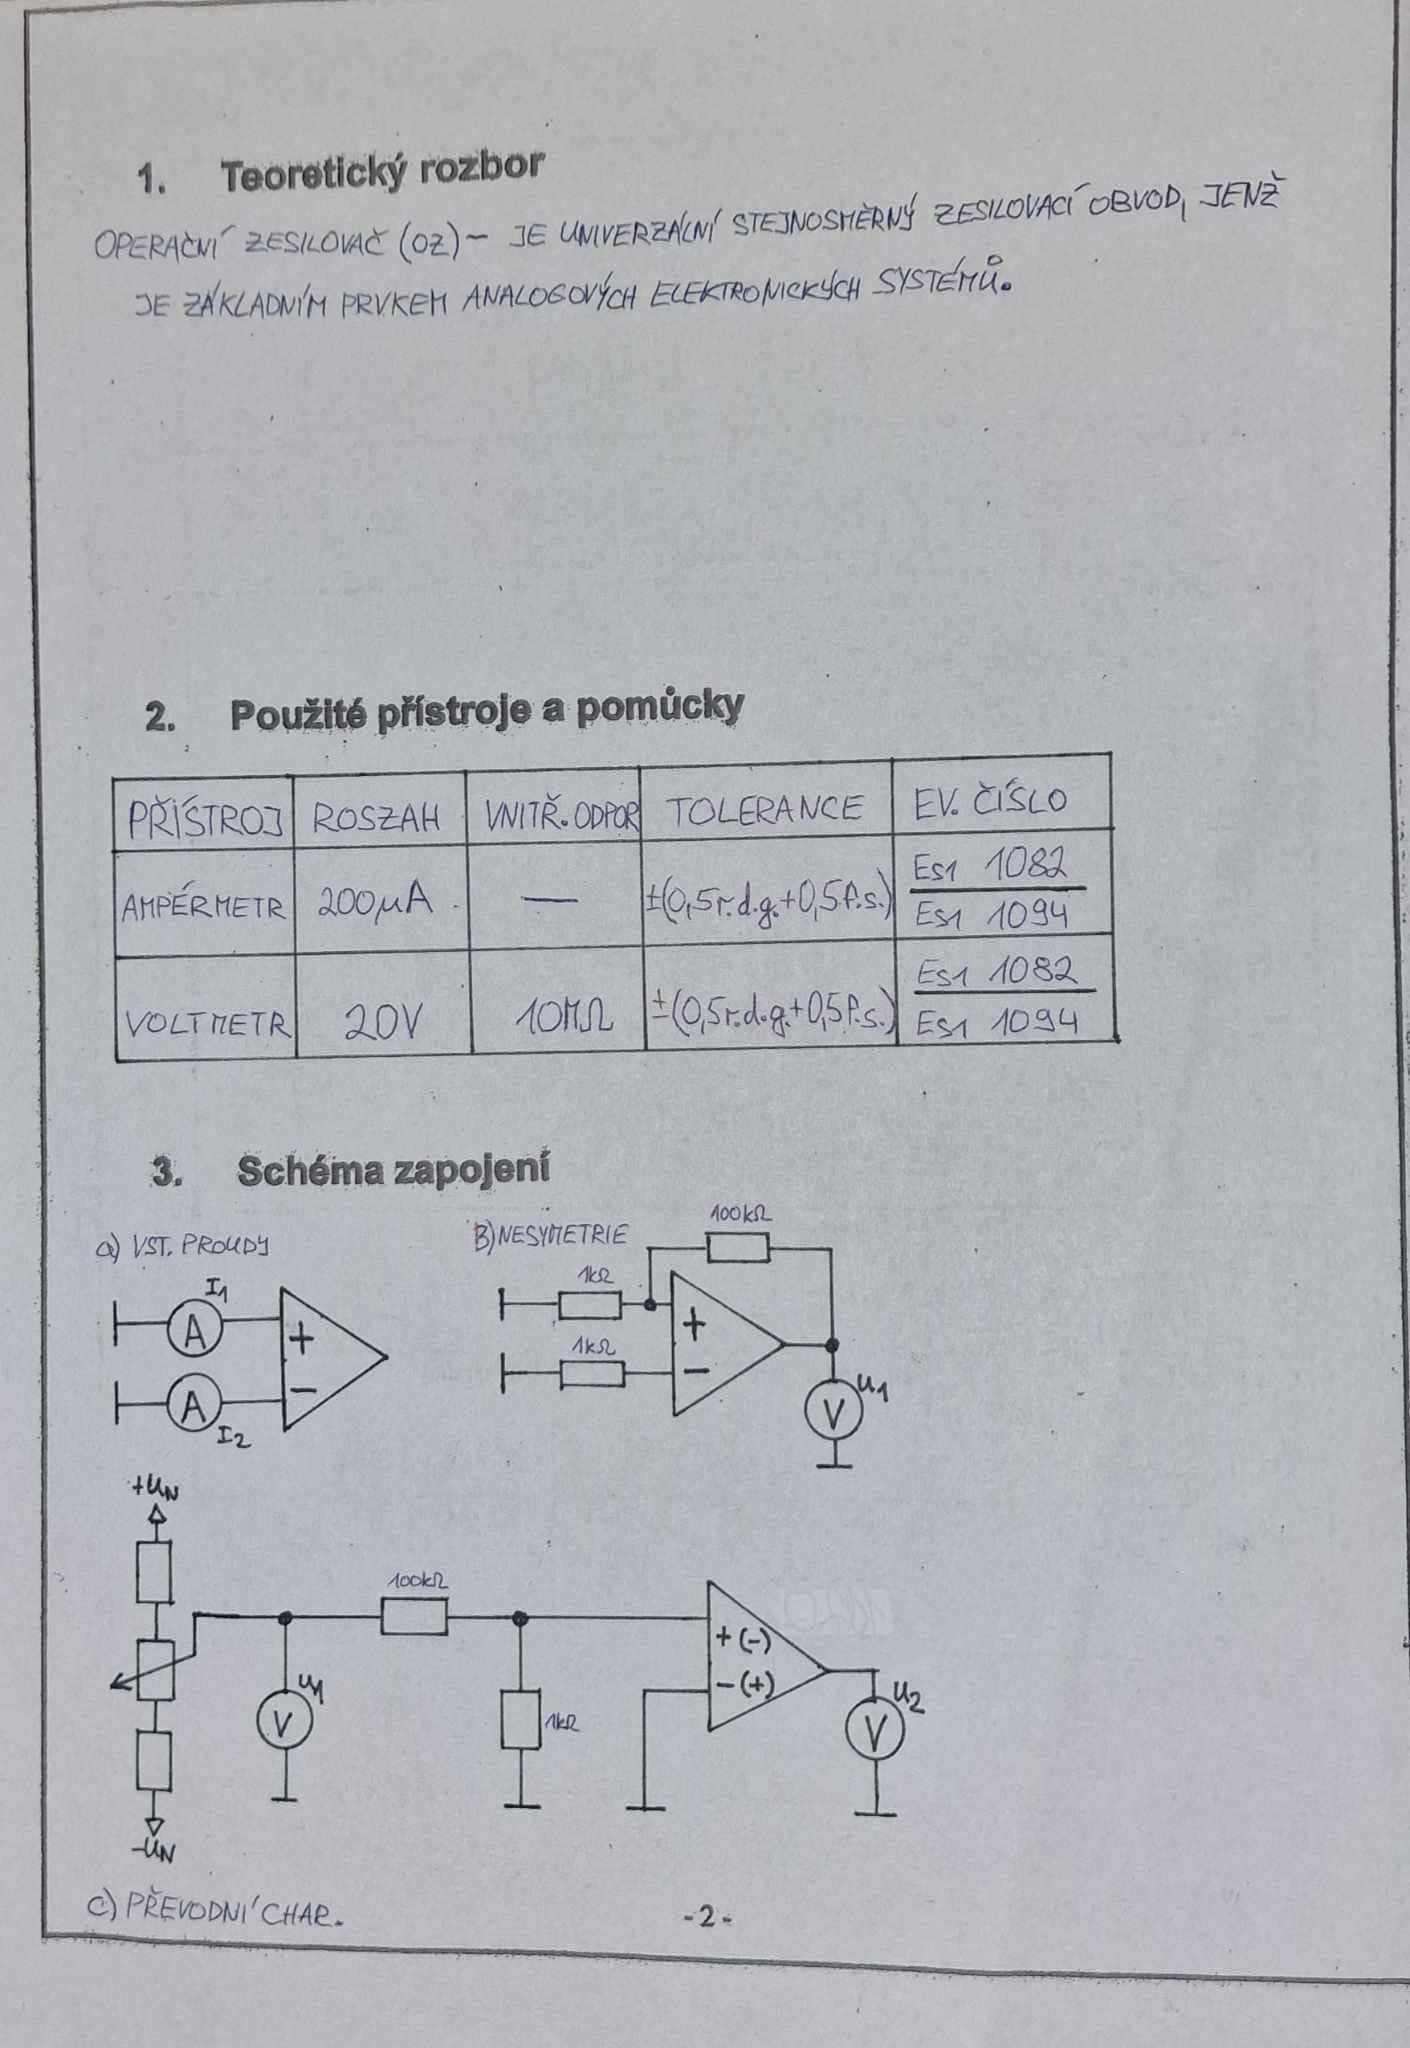 1. Teoretický rozbor
OPERAČNÍ ZESILOVAČ (OZ) – JE UNIVERZÁLNÍ STEJNOSMĚRNÝ ZESILOVACÍ OBVOD, JENŽ
JE ZÁKLADNÍM PRVKEM ANALOGOVÝCH ELEKTRONICKÝCH SYSTÉMŮ.
2. Použité přístroje a pomůcky
PŘÍSTROJ ROSZAH VNITŘ. ODPOR TOLERANCE EV. ČÍSLO
AMPÉRMETR 200μA — ±(0,5r.d.g.+0,5f.s.) Es1 1082
Es1 1094
VOLTMETR 20V 10MΩ ±(0,5r.d.g.+0,5f.s.) Es1 1082
Es1 1094
3. Schéma zapojení
a) VST. PROUDY
I1
A
+
A
−
I2
B) NESYMETRIE
100kΩ
1kΩ
+
1kΩ
−
V
u1
+UN
100kΩ
+ (-)
u1
V
1kΩ
- (+)
u2
V
-UN
C) PŘEVODNÍ CHAR.
-2-